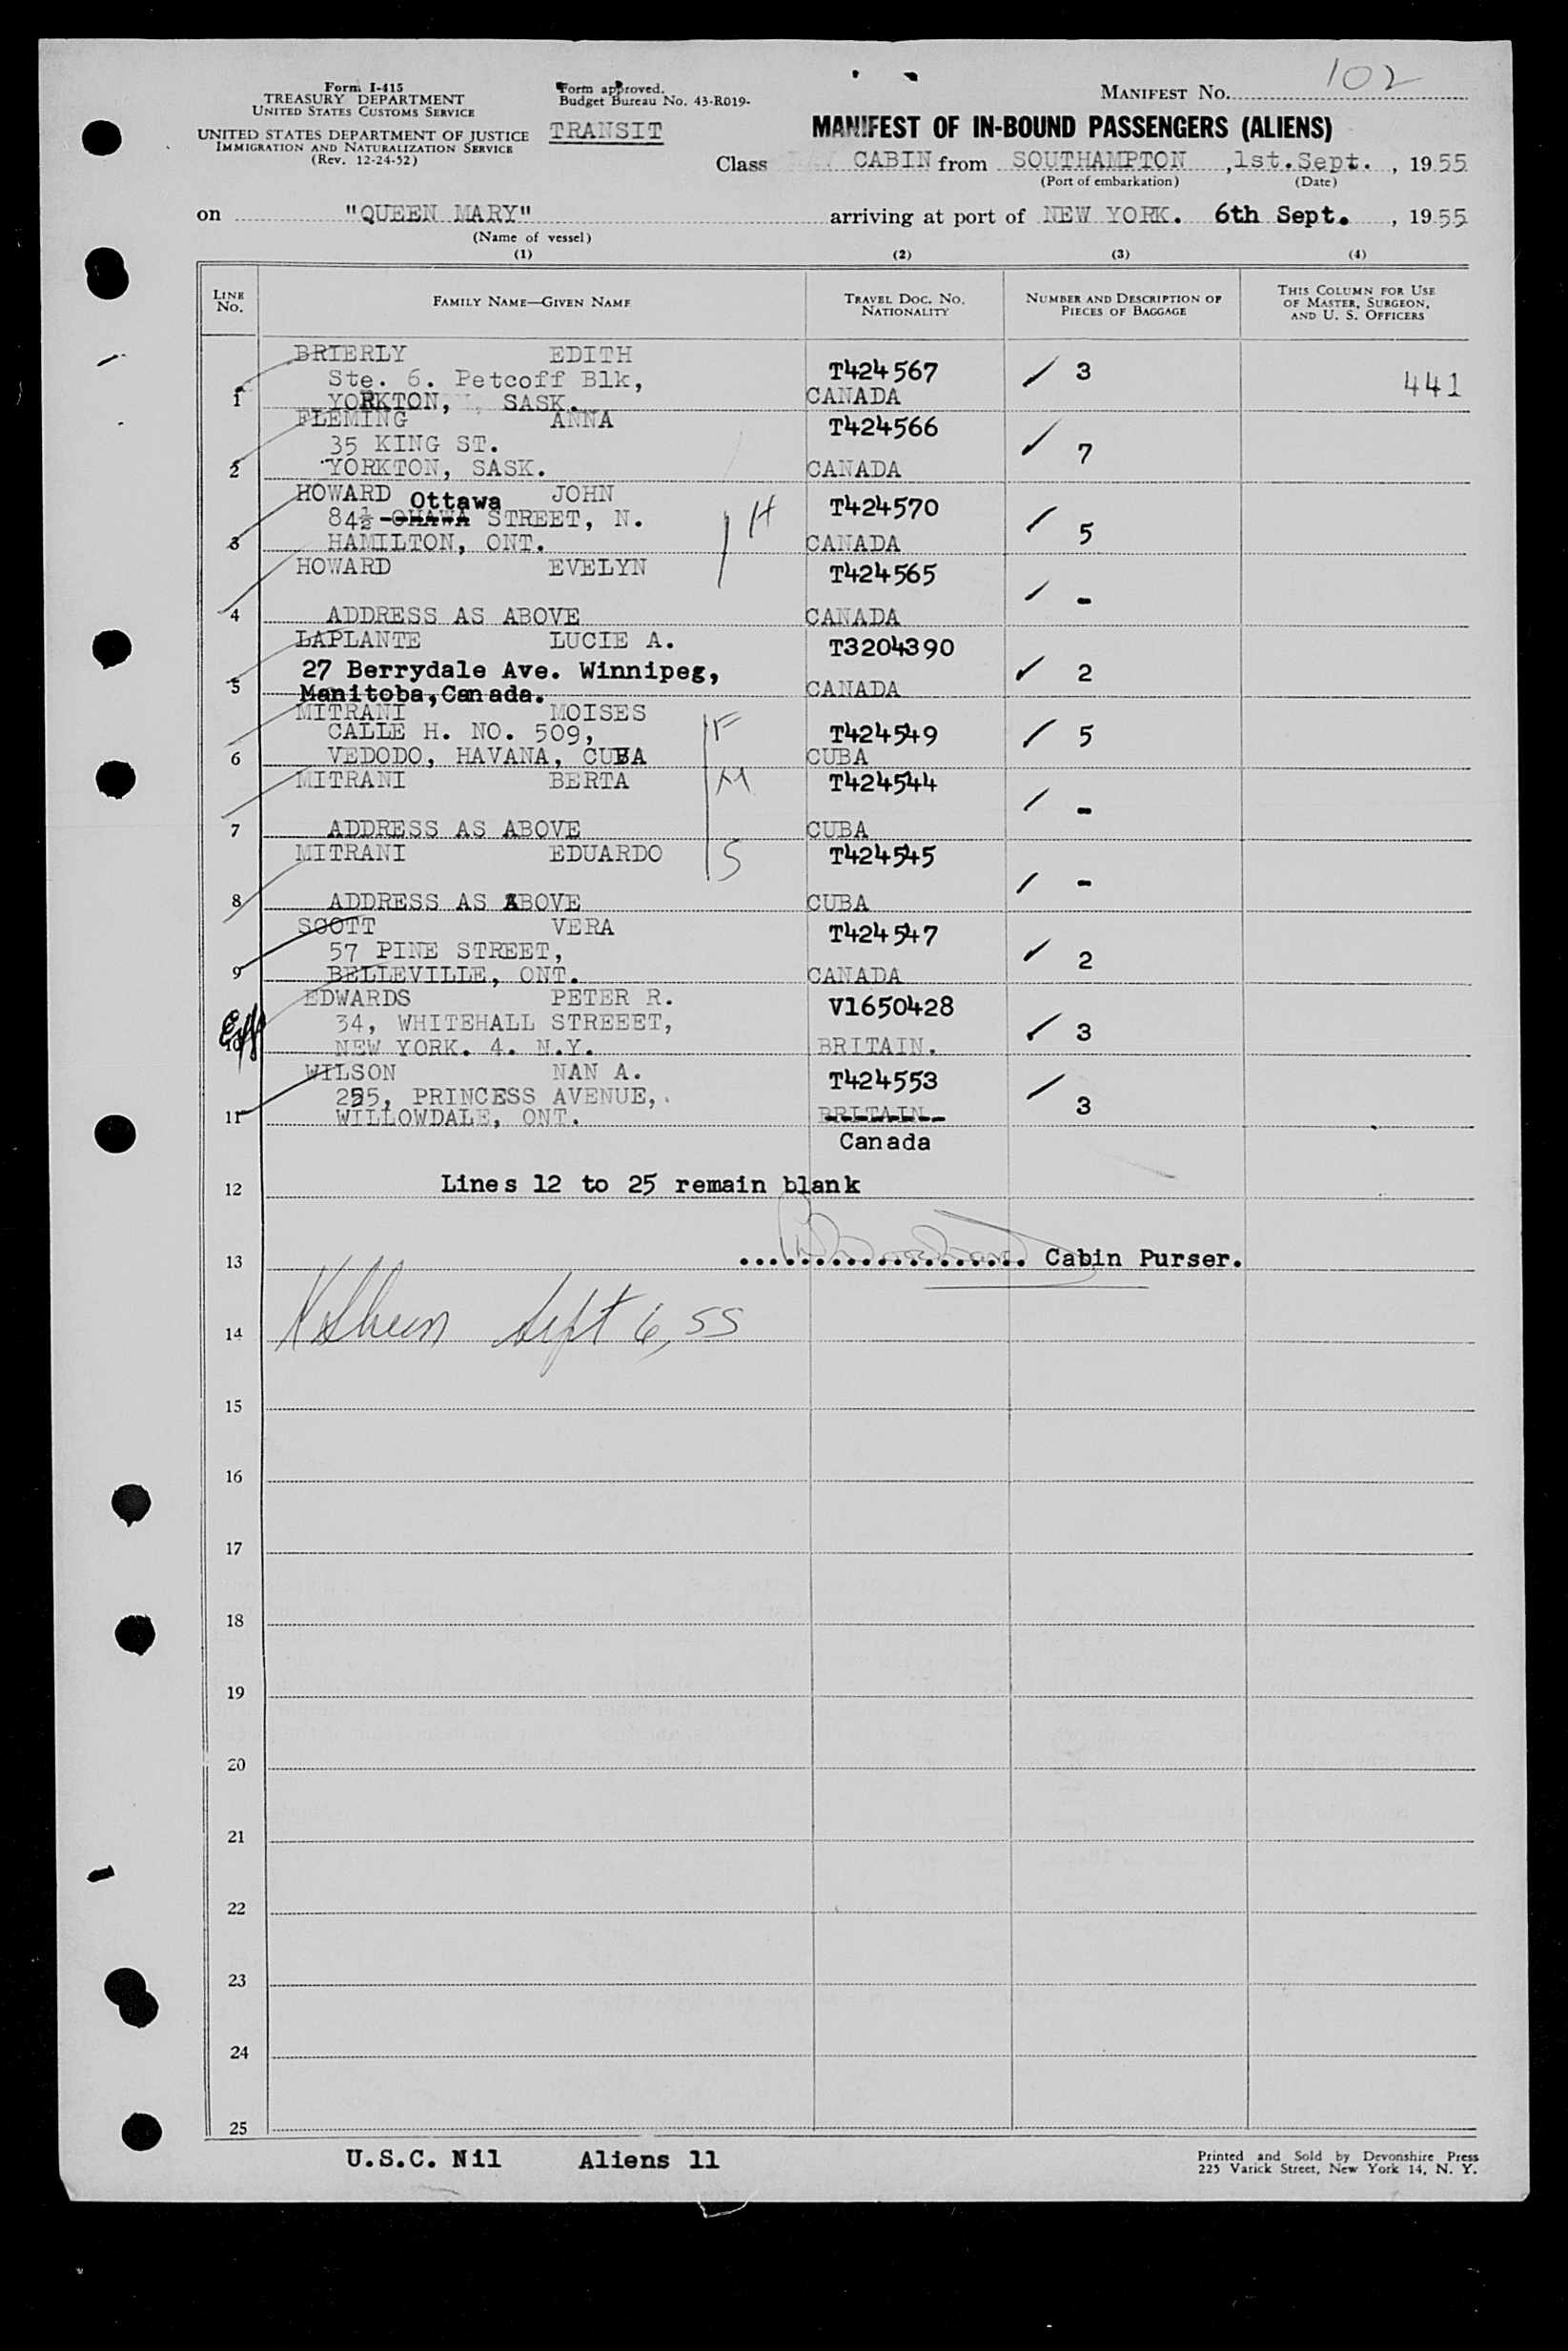 Form I-415
TREASURY DEPARTMENT
UNITED STATES CUSTOMS SERVICE
UNITED STATES DEPARTMENT OF JUSTICE
IMMIGRATION AND NATURALIZATION SERVICE
(Rev. 12-24-52)
Form approved.
Budget Bureau No. 43-R019-
TRANSIT
MANIFEST NO. 102
MANIFEST OF IN-BOUND PASSENGERS (ALIENS)
Class CABIN from SOUTHAMPTON, 1st. Sept., 1955
(Port of embarkation) (Date)
on "QUEEN MARY" arriving at port of NEW YORK. 6th Sept., 1955
(Name of vessel)
(1) (2) (3) (4)
LINE NO.
FAMILY NAME—GIVEN NAME
TRAVEL DOC. NO. NATIONALITY
NUMBER AND DESCRIPTION OF PIECES OF BAGGAGE
THIS COLUMN FOR USE OF MASTER, SURGEON, AND U. S. OFFICERS
BRIERLY EDITH T424567 3 441
Ste. 6. Petcoff Blk,
1 YORKTON, SASK. CANADA
FLEMING ANNA T424566 7
35 KING ST.
2 YORKTON, SASK. CANADA
HOWARD JOHN T424570 5
84½ OHAWA Ottawa STREET, N. H
3 HAMILTON, ONT. CANADA
HOWARD EVELYN T424565 -
4 ADDRESS AS ABOVE CANADA
LAPLANTE LUCIE A. T3204390 2
27 Berrydale Ave. Winnipeg,
5 Manitoba, Canada. CANADA
MITRANI MOISES F T424549 5
CALLE H. NO. 509,
6 VEDODO, HAVANA, CUBA CUBA
MITRANI BERTA M T424544 -
7 ADDRESS AS ABOVE CUBA
MITRANI EDUARDO S T424545 -
8 ADDRESS AS ABOVE CUBA
SCOTT VERA T424547 2
57 PINE STREET,
9 BELLEVILLE, ONT. CANADA
EDWARDS PETER R. V1650428 3
34, WHITEHALL STREEET,
10 NEW YORK. 4. N.Y. BRITAIN.
WILSON NAN A. T424553 3
255, PRINCESS AVENUE,
11 WILLOWDALE, ONT. BRITAIN
Canada
12 Lines 12 to 25 remain blank
13 Cabin Purser.
14 Sept 6, 55
15
16
17
18
19
20
21
22
23
24
25
U.S.C. Nil Aliens 11
Printed and Sold by Devonshire Press
225 Varick Street, New York 14, N. Y.